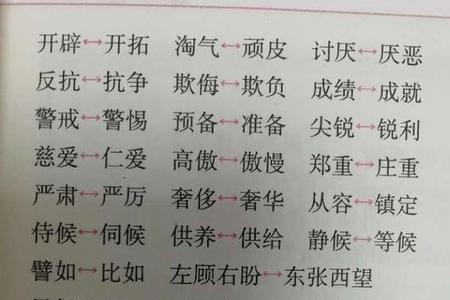 开辟↔开拓 淘气↔顽皮 讨厌↔厌恶
反抗↔抗争 欺侮↔欺负 成绩↔成就
警戒↔警惕 预备↔准备 尖锐↔锐利
慈爱↔仁爱 高傲↔傲慢 郑重↔庄重
严肃↔严厉 奢侈↔奢华 从容↔镇定
侍候↔伺候 供养↔供给 静候↔等候
譬如↔比如 左顾右盼↔东张西望